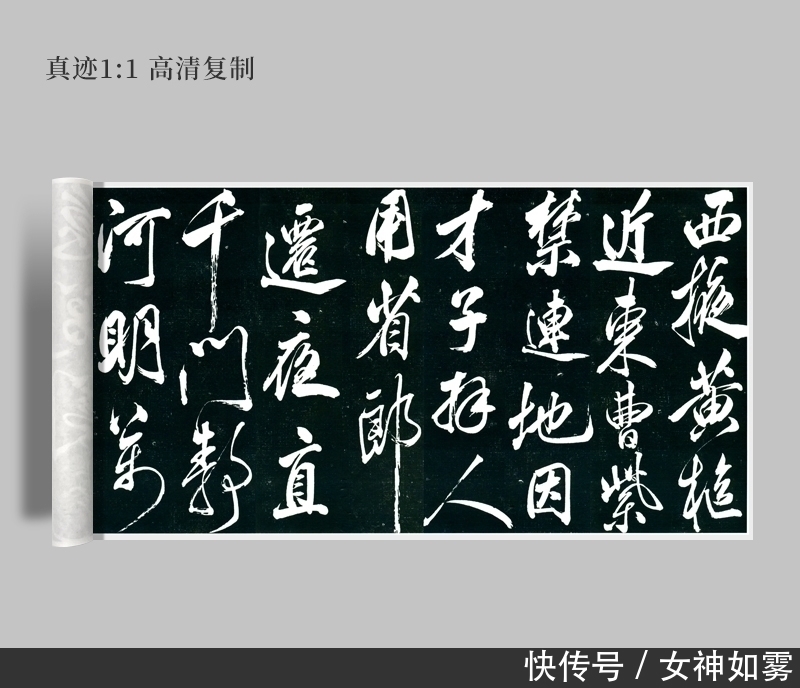 真迹1:1 高清复制
西掖黄樞
近東曹紫
禁連地因
才子拜人
用省郎
遷夜直
千門靜
河明萬
快传号 / 女神如雾